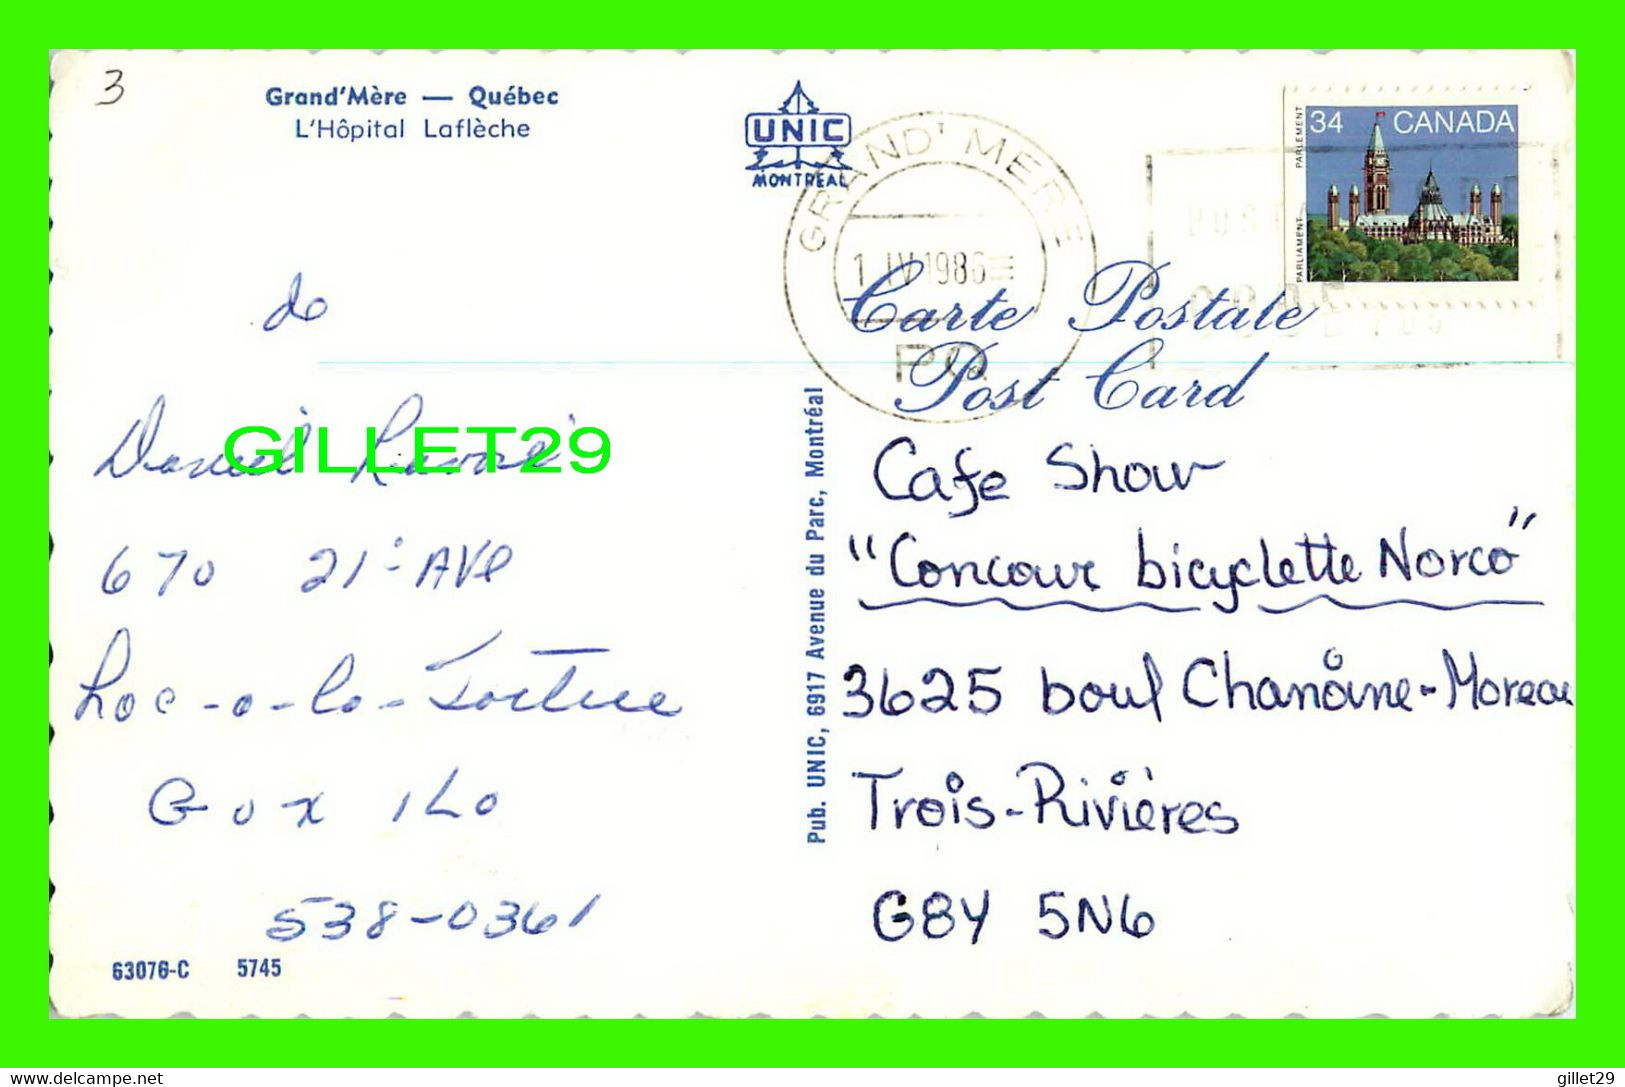 3
Grand'Mère — Québec
L'Hôpital Laflèche
UNIC
MONTRÉAL
GRAND' MERE
1 IV 1986
PQ
34 CANADA
PARLIAMENT PARLEMENT
Carte Postale
Post Card
de
Daniel
670 21e AVE
Lac-a-la-Tortue
GOX 1LO
538-0361
63076-C 5745
Pub. UNIC, 6917 Avenue du Parc, Montréal
Cafe Show
"Concour bicyclette Norco"
3625 boul Chanoine-Moreau
Trois-Rivières
G8Y 5N6
GILLET29
gillet29
www.delcampe.net